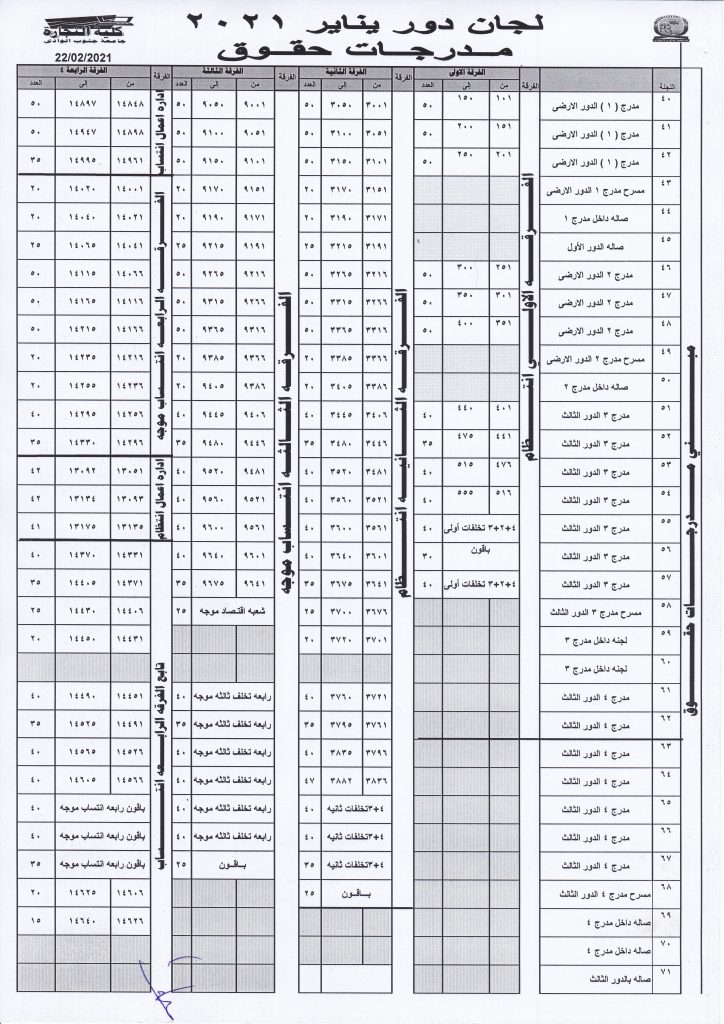 لجان دور يناير ٢٠٢١
مدرجات حقوق
كلية التجارة
جامعة جنوب الوادى
22/02/2021
اللجنة الفرقة الفرقة الاولى الفرقة الفرقة الثانية الفرقة الفرقة الثالثة الفرقة الفرقة الرابعة ٤
من إلى العدد من إلى العدد من إلى العدد من إلى العدد
مبنى مدرجات حقوق
الفرقه الاولى انتظام
الفرقه الثانيه انتظام
الفرقه الثالثه انتساب موجه
اداره اعمال انتساب
الفرقه الرابعه انتساب موجه
اداره اعمال انتظام
تابع الفرقه الرابعه انتساب
٤٠ مدرج ( ١ ) الدور الارضى ١٠١ ١٥٠ ٥٠ ٣٠٠١ ٣٠٥٠ ٥٠ ٩٠٠١ ٩٠٥٠ ٥٠ ١٤٨٤٨ ١٤٨٩٧ ٥٠
٤١ مدرج ( ١ ) الدور الارضى ١٥١ ٢٠٠ ٥٠ ٣٠٥١ ٣١٠٠ ٥٠ ٩٠٥١ ٩١٠٠ ٥٠ ١٤٨٩٨ ١٤٩٤٧ ٥٠
٤٢ مدرج ( ١ ) الدور الارضى ٢٠١ ٢٥٠ ٥٠ ٣١٠١ ٣١٥٠ ٥٠ ٩١٠١ ٩١٥٠ ٥٠ ١٤٩٦١ ١٤٩٩٥ ٣٥
٤٣ مسرح مدرج ١ الدور الارضى ٣١٥١ ٣١٧٠ ٢٠ ٩١٥١ ٩١٧٠ ٢٠ ١٤٠٠١ ١٤٠٢٠ ٢٠
٤٤ صاله داخل مدرج ١ ٣١٧١ ٣١٩٠ ٢٠ ٩١٧١ ٩١٩٠ ٢٠ ١٤٠٢١ ١٤٠٤٠ ٢٠
٤٥ صاله الدور الأول ٣١٩١ ٣٢١٥ ٢٥ ٩١٩١ ٩٢١٥ ٢٥ ١٤٠٤١ ١٤٠٦٥ ٢٥
٤٦ مدرج ٢ الدور الارضى ٢٥١ ٣٠٠ ٥٠ ٣٢١٦ ٣٢٦٥ ٥٠ ٩٢١٦ ٩٢٦٥ ٥٠ ١٤٠٦٦ ١٤١١٥ ٥٠
٤٧ مدرج ٢ الدور الارضى ٣٠١ ٣٥٠ ٥٠ ٣٢٦٦ ٣٣١٥ ٥٠ ٩٢٦٦ ٩٣١٥ ٥٠ ١٤١١٦ ١٤١٦٥ ٥٠
٤٨ مدرج ٢ الدور الارضى ٣٥١ ٤٠٠ ٥٠ ٣٣١٦ ٣٣٦٥ ٥٠ ٩٣١٦ ٩٣٦٥ ٥٠ ١٤١٦٦ ١٤٢١٥ ٥٠
٤٩ مسرح مدرج ٢ الدور الارضى ٣٣٦٦ ٣٣٨٥ ٢٠ ٩٣٦٦ ٩٣٨٥ ٢٠ ١٤٢١٦ ١٤٢٣٥ ٢٠
٥٠ صاله داخل مدرج ٢ ٣٣٨٦ ٣٤٠٥ ٢٠ ٩٣٨٦ ٩٤٠٥ ٢٠ ١٤٢٣٦ ١٤٢٥٥ ٢٠
٥١ مدرج ٣ الدور الثالث ٤٠١ ٤٤٠ ٤٠ ٣٤٠٦ ٣٤٤٥ ٤٠ ٩٤٠٦ ٩٤٤٥ ٤٠ ١٤٢٥٦ ١٤٢٩٥ ٤٠
٥٢ مدرج ٣ الدور الثالث ٤٤١ ٤٧٥ ٣٥ ٣٤٤٦ ٣٤٨٠ ٣٥ ٩٤٤٦ ٩٤٨٠ ٣٥ ١٤٢٩٦ ١٤٣٣٠ ٣٥
٥٣ مدرج ٣ الدور الثالث ٤٧٦ ٥١٥ ٤٠ ٣٤٨١ ٣٥٢٠ ٤٠ ٩٤٨١ ٩٥٢٠ ٤٠ ١٣٠٥١ ١٣٠٩٢ ٤٢
٥٤ مدرج ٣ الدور الثالث ٥١٦ ٥٥٥ ٤٠ ٣٥٢١ ٣٥٦٠ ٤٠ ٩٥٢١ ٩٥٦٠ ٤٠ ١٣٠٩٣ ١٣١٣٤ ٤٢
٥٥ مدرج ٣ الدور الثالث ٤+٢+٣ تخلفات أولى ٤٠ ٣٥٦١ ٣٦٠٠ ٤٠ ٩٥٦١ ٩٦٠٠ ٤٠ ١٣١٣٥ ١٣١٧٥ ٤١
٥٦ مدرج ٣ الدور الثالث باقون ٣٠ ٣٦٠١ ٣٦٤٠ ٤٠ ٩٦٠١ ٩٦٤٠ ٤٠ ١٤٣٣١ ١٤٣٧٠ ٤٠
٥٧ مدرج ٣ الدور الثالث ٤+٢+٣ تخلفات أولى ٤٠ ٣٦٤١ ٣٦٧٥ ٣٥ ٩٦٤١ ٩٦٧٥ ٣٥ ١٤٣٧١ ١٤٤٠٥ ٣٥
٥٨ مسرح مدرج ٣ الدور الثالث ٣٦٧٦ ٣٧٠٠ ٢٥ شعبه اقتصاد موجه ٢٥ ١٤٤٠٦ ١٤٤٣٠ ٢٥
٥٩ لجنه داخل مدرج ٣ ٣٧٠١ ٣٧٢٠ ٢٠ ١٤٤٣١ ١٤٤٥٠ ٢٠
٦٠ لجنه داخل مدرج ٣
٦١ مدرج ٤ الدور الثالث ٣٧٢١ ٣٧٦٠ ٤٠ رابعه تخلف ثالثه موجه ٤٠ ١٤٤٥١ ١٤٤٩٠ ٤٠
٦٢ مدرج ٤ الدور الثالث ٣٧٦١ ٣٧٩٥ ٣٥ رابعه تخلف ثالثه موجه ٣٥ ١٤٤٩١ ١٤٥٢٥ ٣٥
٦٣ مدرج ٤ الدور الثالث ٣٧٩٦ ٣٨٣٥ ٤٠ رابعه تخلف ثالثه موجه ٤٠ ١٤٥٢٦ ١٤٥٦٥ ٤٠
٦٤ مدرج ٤ الدور الثالث ٣٨٣٦ ٣٨٨٢ ٤٧ رابعه تخلف ثالثه موجه ٤٠ ١٤٥٦٦ ١٤٦٠٥ ٤٠
٦٥ مدرج ٤ الدور الثالث ٤+٣تخلفات ثانيه ٤٠ رابعه تخلف ثالثه موجه ٤٠ باقون رابعه انتساب موجه ٤٠
٦٦ مدرج ٤ الدور الثالث ٤+٣تخلفات ثانيه ٤٠ رابعه تخلف ثالثه موجه ٤٠ باقون رابعه انتساب موجه ٤٠
٦٧ مدرج ٤ الدور الثالث ٤+٣تخلفات ثانيه ٣٥ باقون ٢٥ باقون رابعه انتساب موجه ٣٥
٦٨ مسرح مدرج ٤ الدور الثالث باقون ٢٥ ١٤٦٠٦ ١٤٦٢٥ ٢٠
٦٩ صاله داخل مدرج ٤ ١٤٦٢٦ ١٤٦٤٠ ١٥
٧٠ صاله داخل مدرج ٤
٧١ صاله بالدور الثالث